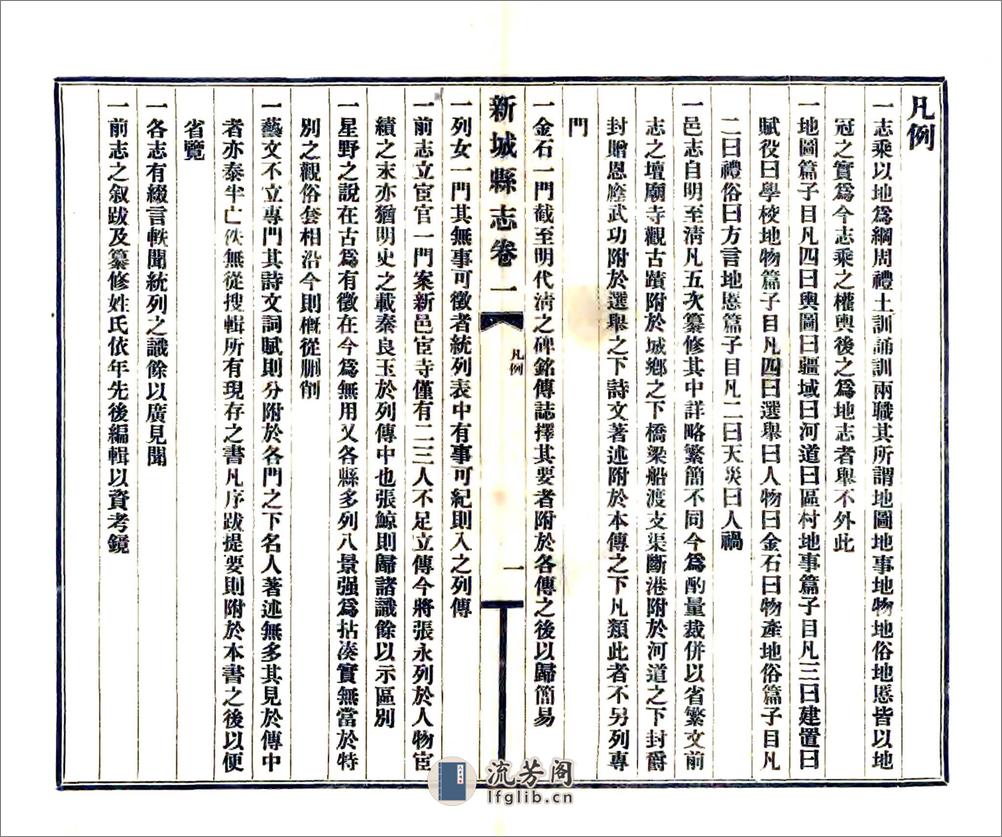 凡例
一志乘以地爲綱周禮土訓誦訓兩職其所謂地圖地事地物地俗地慝皆以地
冠之實爲今志乘之權輿後之爲地志者舉不外此
一地圖篇子目凡四曰輿圖曰疆域曰河道曰區村地事篇子目凡三曰建置曰
賦役曰學校地物篇子目凡四曰選舉曰人物曰金石曰物產地俗篇子目凡
二曰禮俗曰方言地慝篇子目凡二曰天災曰人禍
一邑志自明至淸凡五次纂修其中詳略繁簡不同今爲酌量裁併以省繁文前
志之壇廟寺觀古蹟附於城鄉之下橋梁船渡支渠斷港附於河道之下封爵
封贈恩廕武功附於選舉之下詩文著述附於本傳之下凡類此者不另列專
門
一金石一門截至明代淸之碑銘傳誌擇其要者附於各傳之後以歸簡易
新城縣志卷一
凡例
一
一列女一門其無事可徵者統列表中有事可紀則入之列傳
一前志立宦官一門案新邑宦寺僅有二三人不足立傳今將張永列於人物宦
績之末亦猶明史之載秦良玉於列傳中也張鯨則歸諸識餘以示區別
一星野之說在古爲有徵在今爲無用又各縣多列八景强爲拈凑實無當於特
別之觀俗套相沿今則槪從刪削
一藝文不立專門其詩文詞賦則分附於各門之下名人著述無多其見於傳中
者亦泰半亡佚無從搜輯所有現存之書凡序跋提要則附於本書之後以便
省覽
一各志有綴言軼聞統列之識餘以廣見聞
一前志之叙跋及纂修姓氏依年先後編輯以資考鏡
流芳阁
lfglib.cn